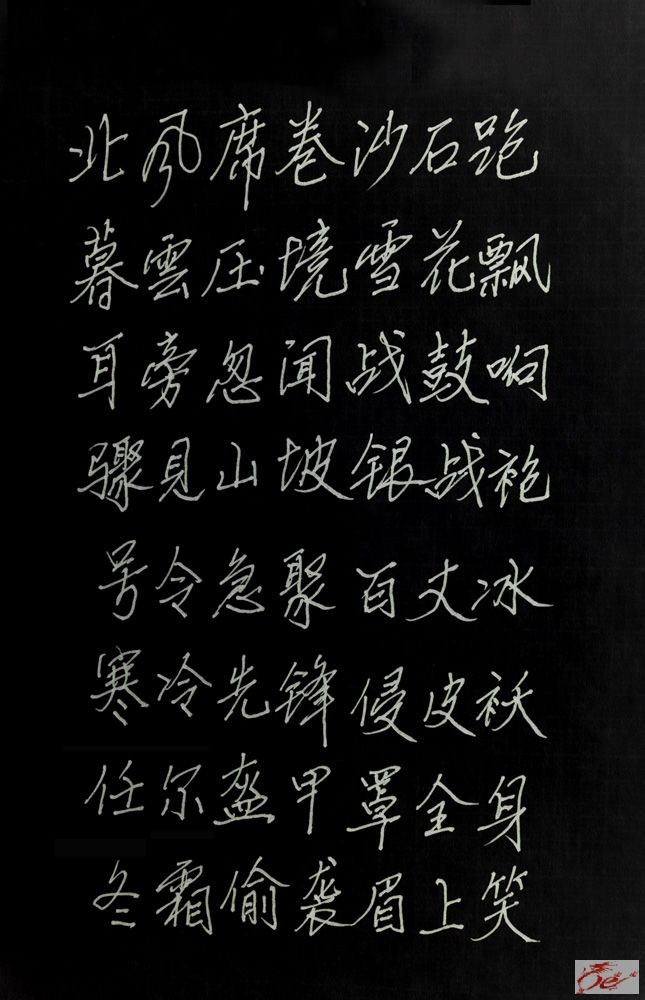 北风席卷沙石跑
暮雲压境雪花飘
耳旁忽闻战鼓响
骤見山坡银战袍
号令急聚百丈冰
寒冷先锋侵皮袄
任尔盔甲罩全身
冬霜偷袭眉上笑